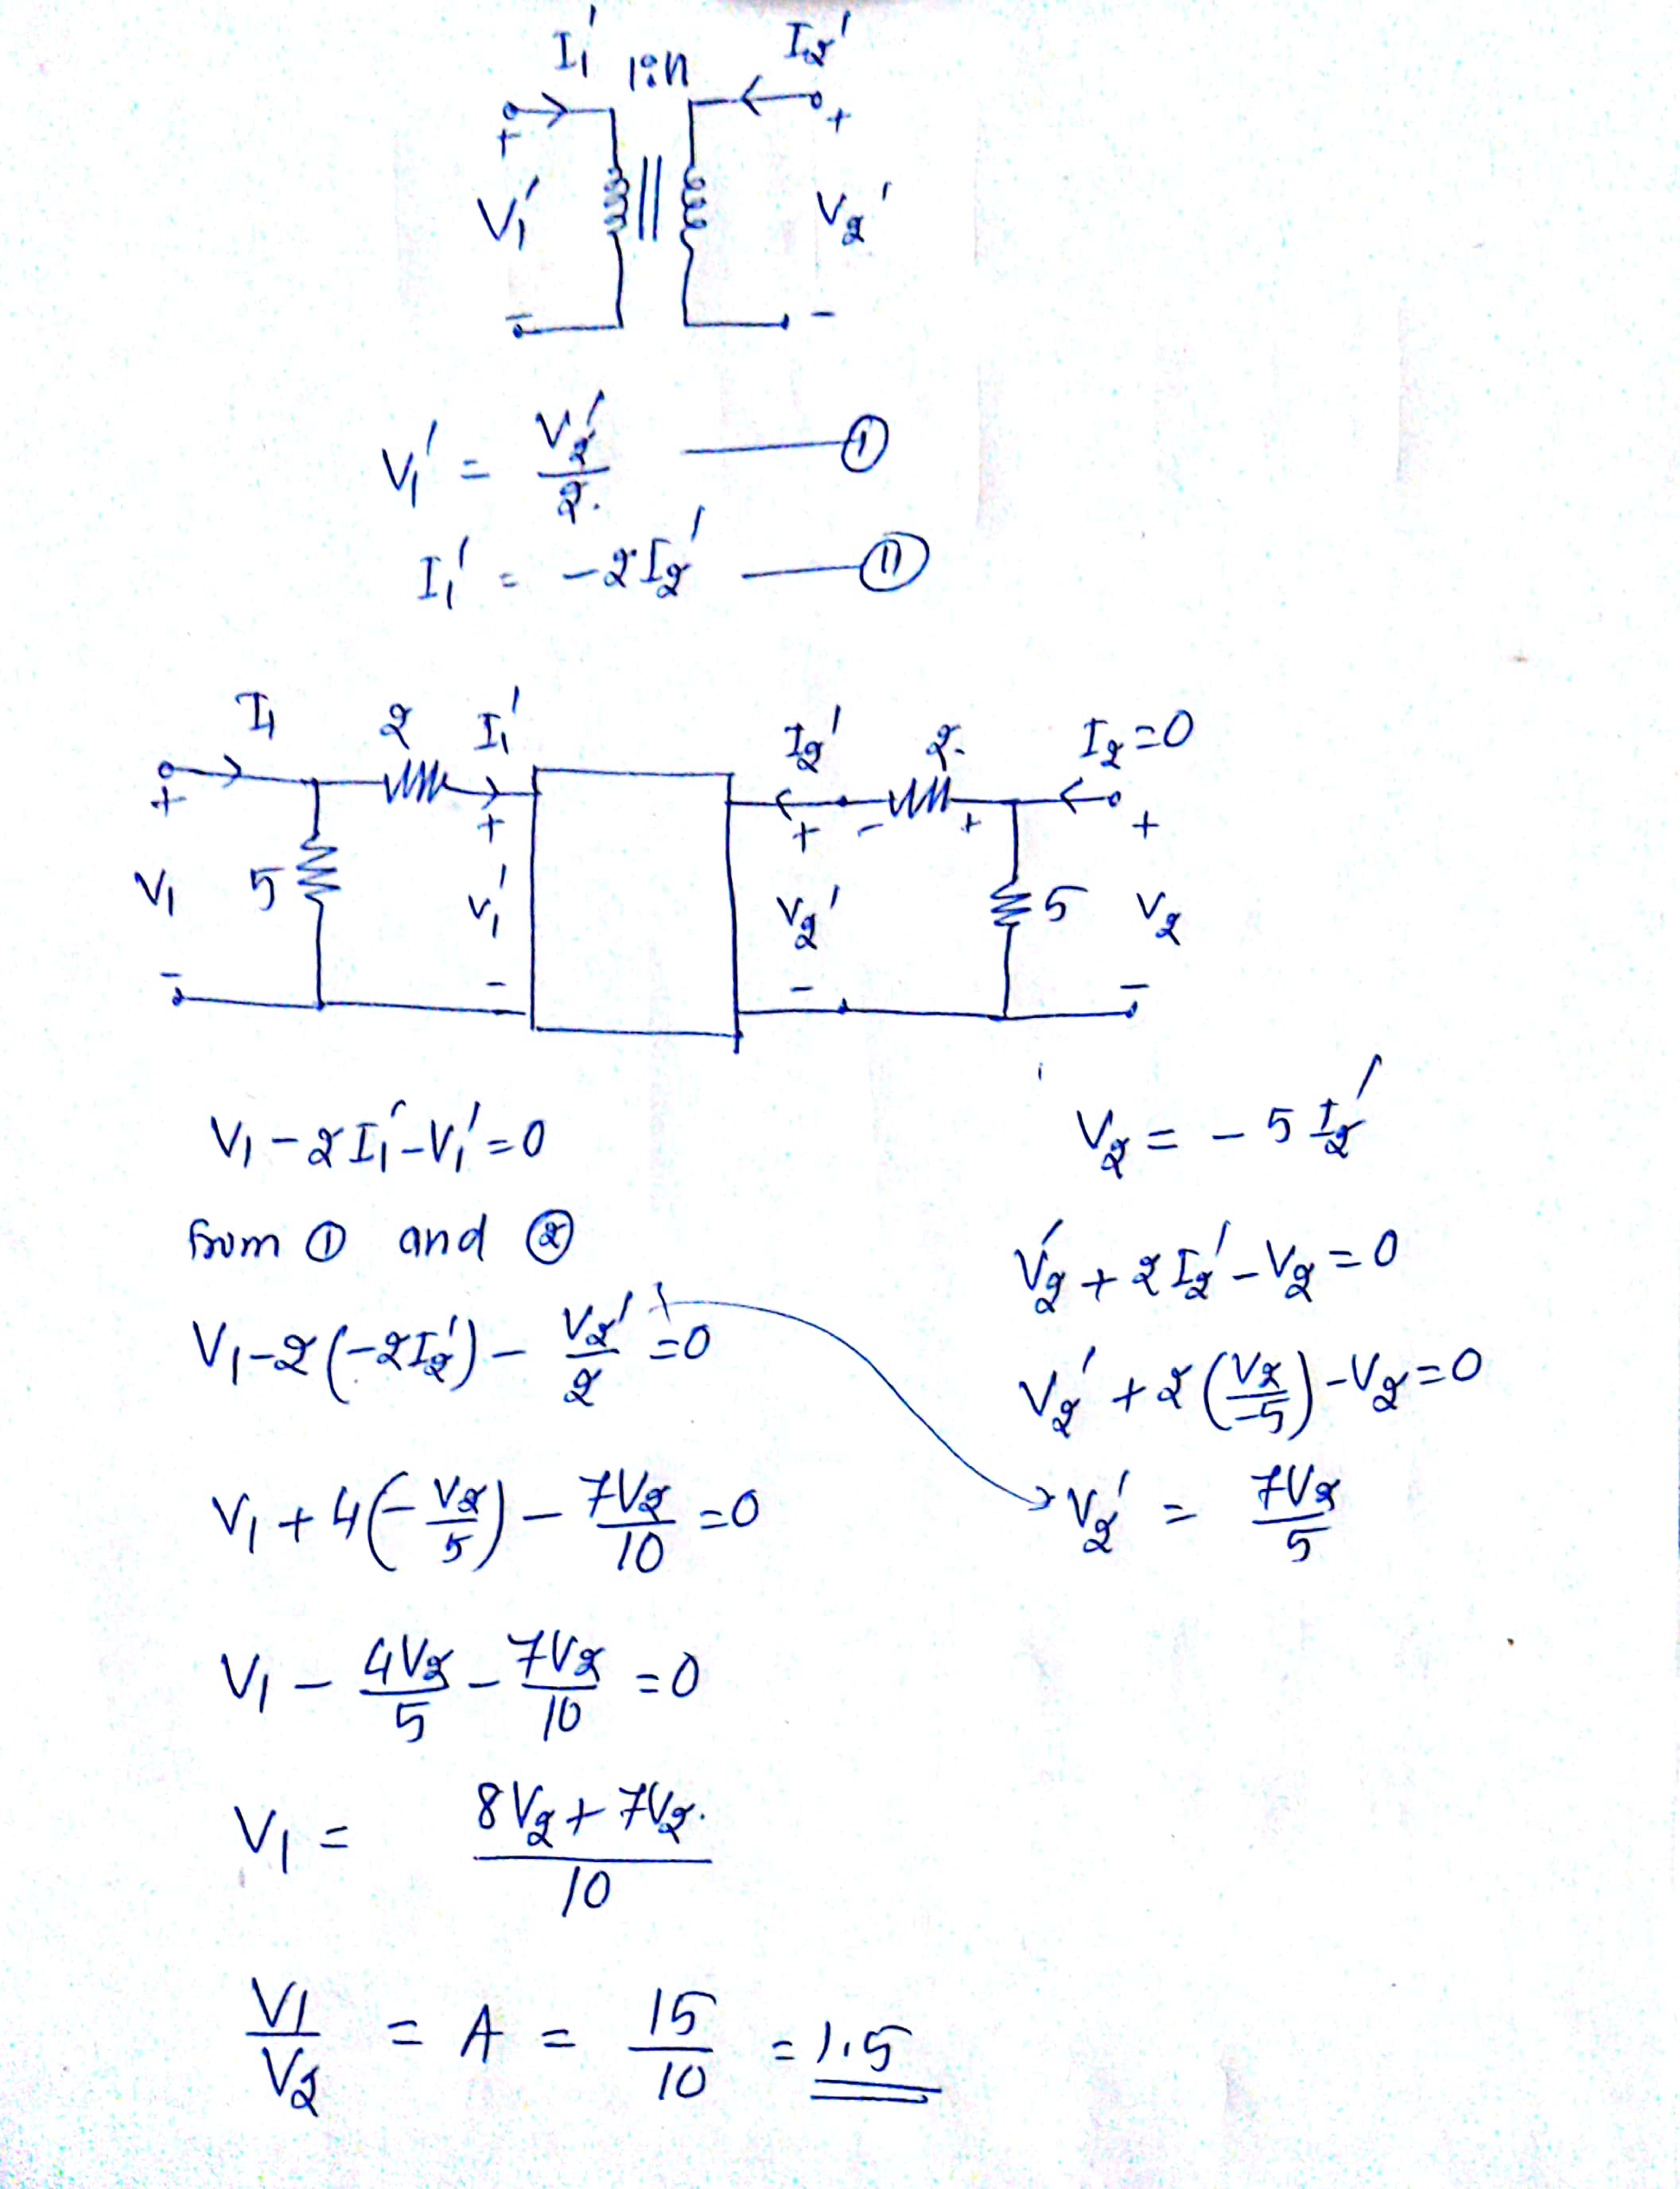 I₁' 1:n I₂'
+ +
V₁' V₂'
- -
V₁' = V₂'/2. —— ①
I₁' = -2I₂' —— ⑪
I₁ 2 I₁' I₂' 2. I₂=0
+ + + - + +
V₁ 5 V₁' V₂' 5 V₂
- - - -
V₁ - 2I₁' - V₁' = 0
from ① and ②
V₁ - 2(-2I₂') - V₂'/2 = 0
V₁ + 4(-V₂/5) - 7V₂/10 = 0
V₁ - 4V₂/5 - 7V₂/10 = 0
V₁ = 8V₂ + 7V₂./10
V₁/V₂ = A = 15/10 = 1.5
V₂ = - 5 I₂'
V₂' + 2I₂' - V₂ = 0
V₂' + 2(V₂/-5) - V₂ = 0
V₂' = 7V₂/5